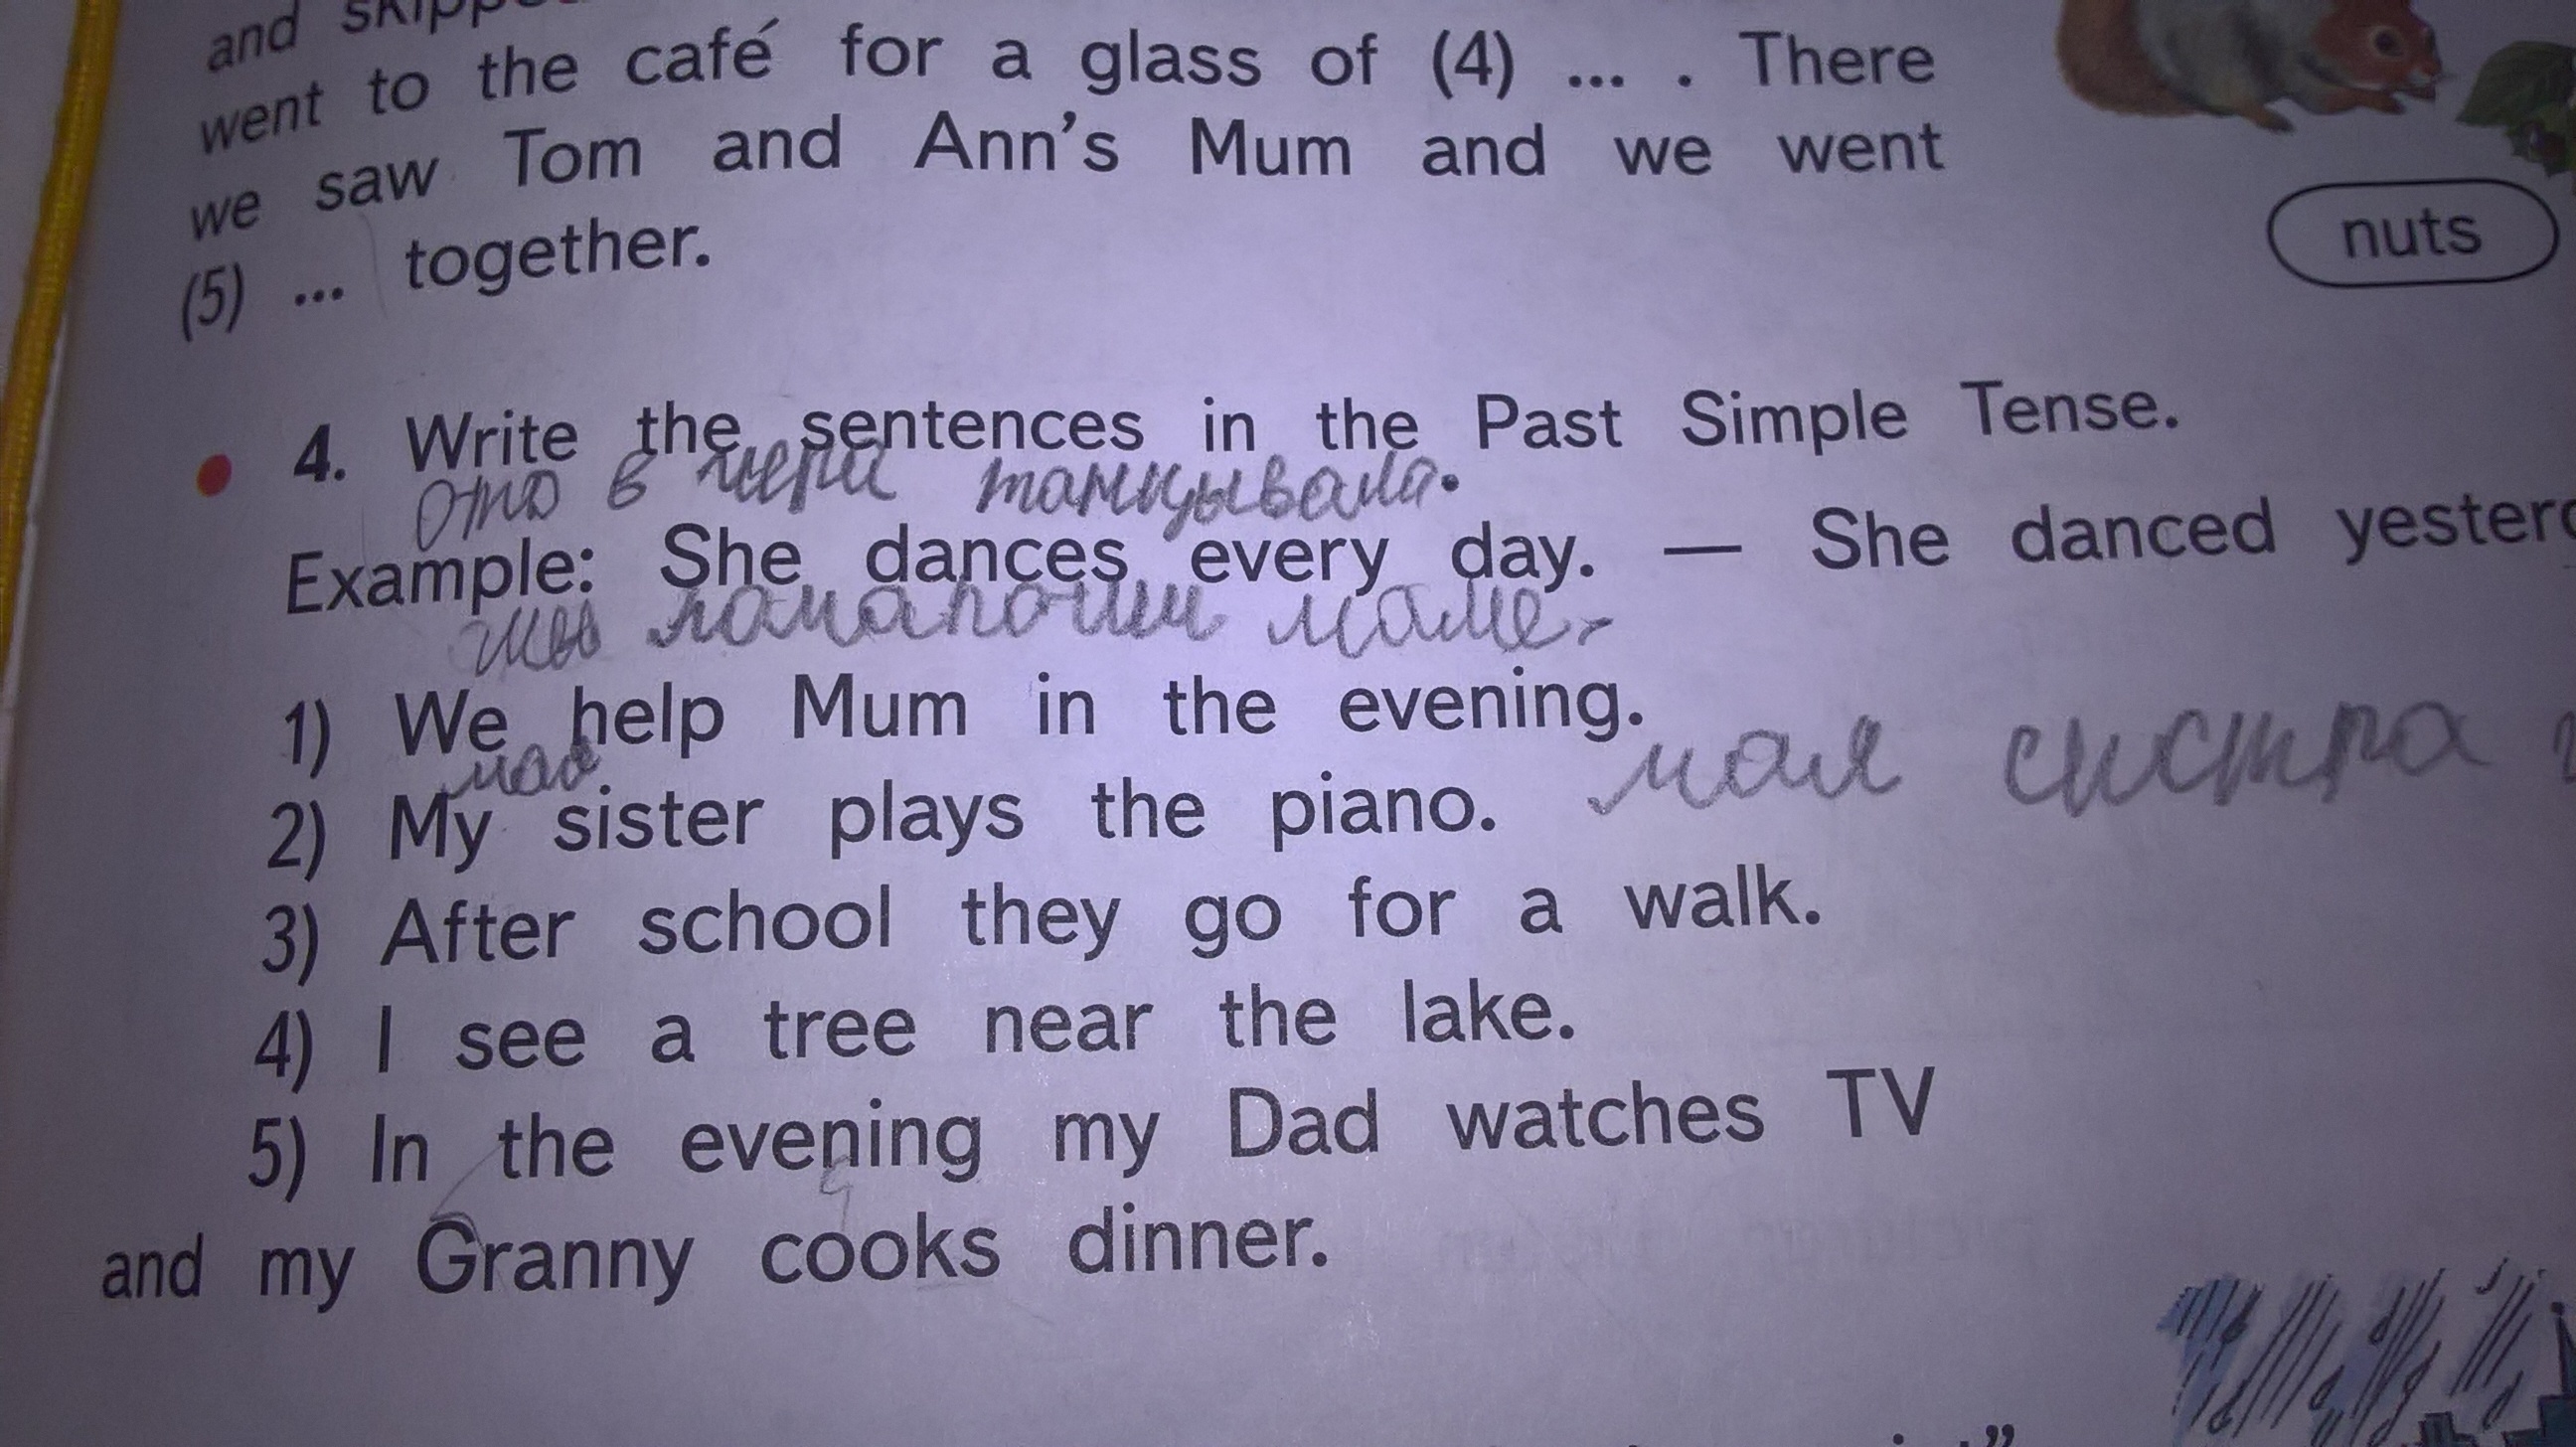 and
went to the café for a glass of (4) ... . There
we saw Tom and Ann's Mum and we went
(5) ... together.
nuts
4. Write the sentences in the Past Simple Tense.
в танцывала.
Example: She dances every day. — She danced
мы маме
1) We help Mum in the evening.
моя систра
2) My sister plays the piano.
3) After school they go for a walk.
4) I see a tree near the lake.
5) In the evening my Dad watches TV
and my Granny cooks dinner.